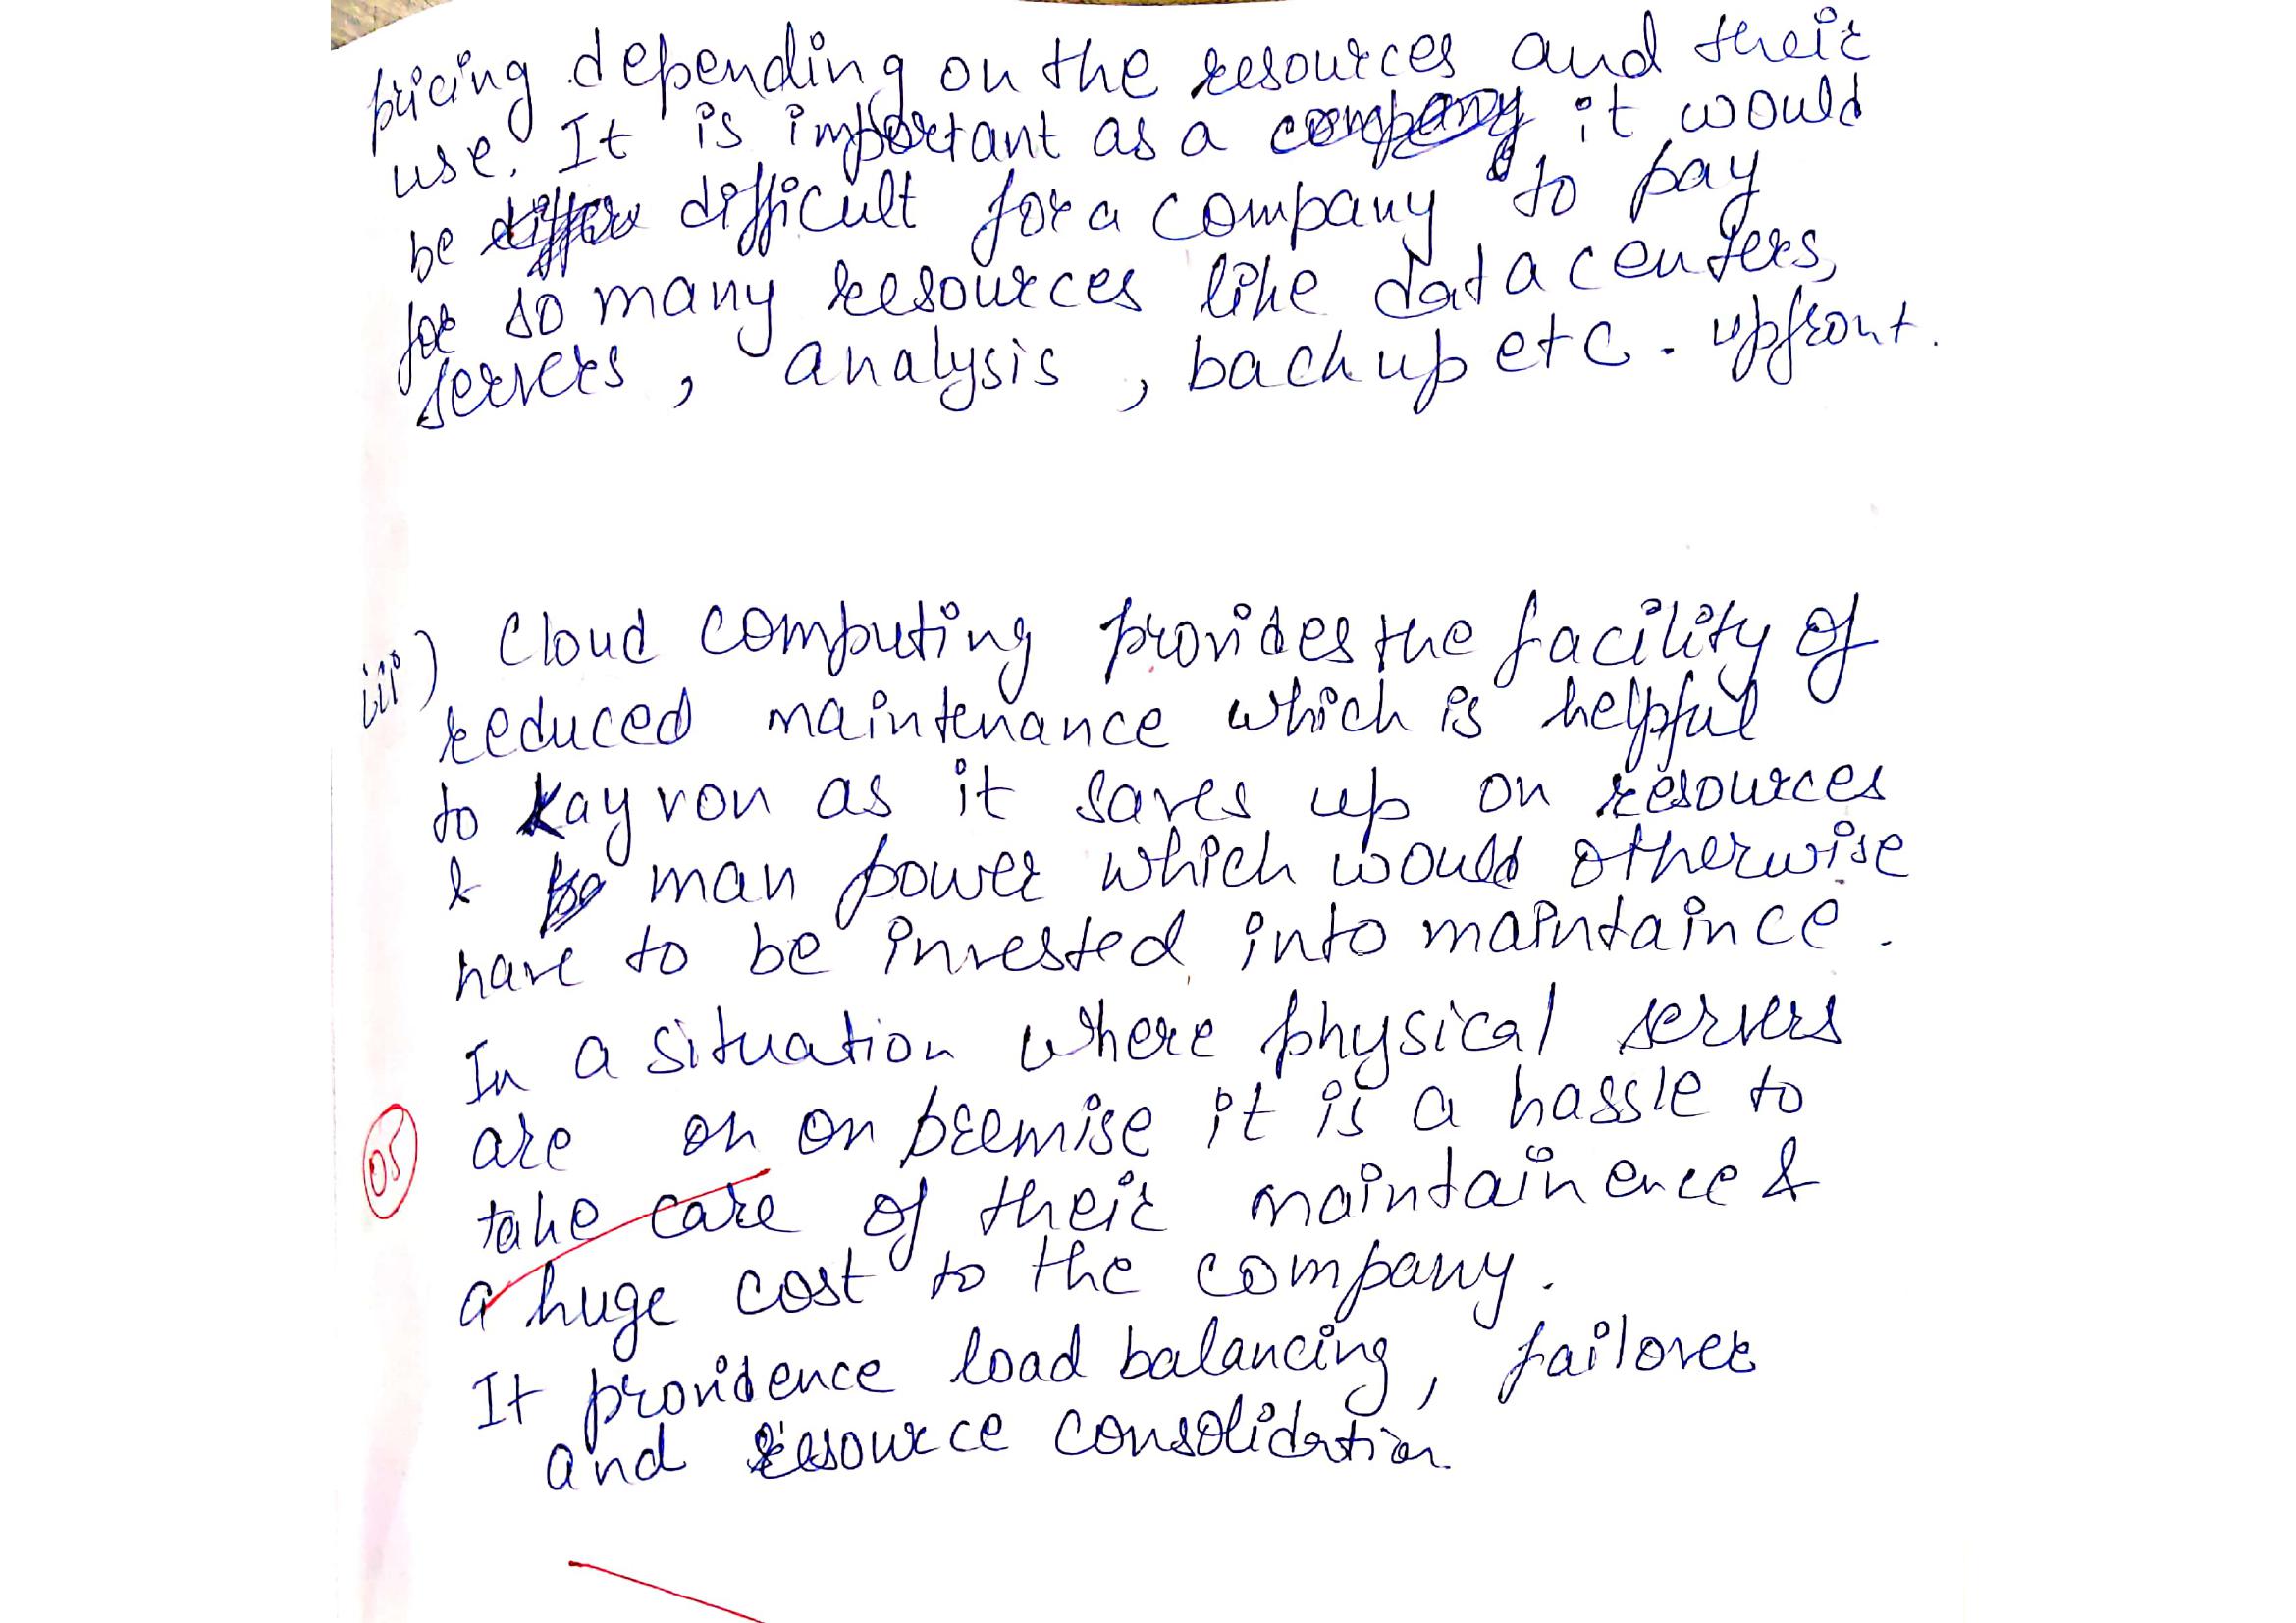 pricing depending on the resources and their
use. It is important as a company it would
be difficult for a company to pay
for so many resources like data centers,
servers, analysis, backup etc. upfront.
iii) Cloud computing provides the facility of
reduced maintenance which is helpful
to Kayvon as it saves up on resources
& man power which would otherwise
have to be invested into maintaince.
In a situation where physical servers
are on on premise it is a hassle to
05
take care of their maintainence &
a huge cost to the company.
It providence load balancing, failover
and resource consolidation.